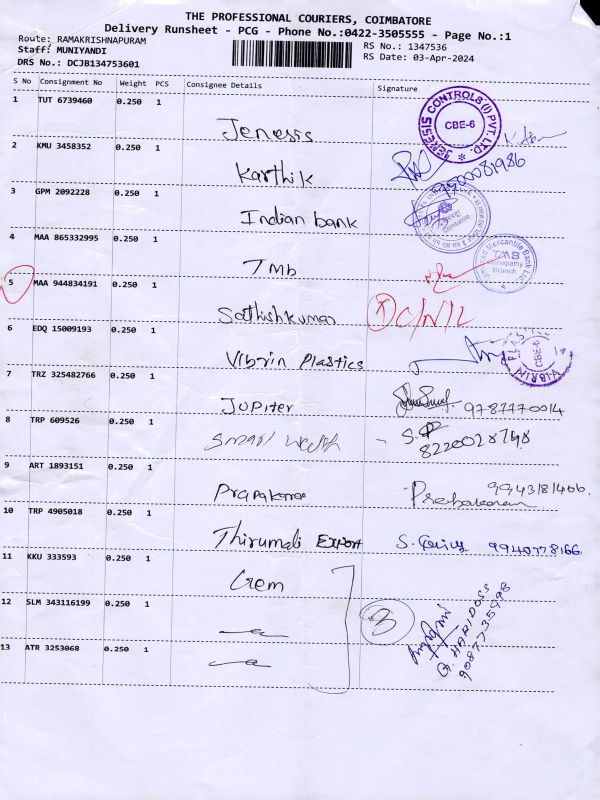 THE PROFESSIONAL COURIERS, COIMBATORE
Delivery Runsheet - PCG - Phone No.:0422-3505555 - Page No.:1
Route: RAMAKRISHNAPURAM
Staff: MUNIYANDI
DRS No.: DCJB134753601
RS No.: 1347536
RS Date: 03-Apr-2024
S No Consignment No Weight PCS Consignee Details Signature
1 TUT 6739460 0.250 1
Jenesis
JENESIS CONTROLS (I) PVT. LTD. CBE-6
2 KMU 3458352 0.250 1
Karthik
3 GPM 2092228 0.250 1
Indian bank
4 MAA 865332995 0.250 1
Tmb
Mercantile Bank Ltd. TMB Branch
5 MAA 944834191 0.250 1
Sathishkumar C/N/L
6 EDQ 15009193 0.250 1
Vibrin Plastics
VIBRIN PLASTIC CBE-6
7 TRZ 325482766 0.250 1
Jupiter 9787770014
8 TRP 609526 0.250 1
8220028748
9 ART 1893151 0.250 1
Prapakaran Prabakaran 9943181406.
10 TRP 4905018 0.250 1
Thirumali Export 9940778166
11 KKU 333593 0.250 1
Crem
12 SLM 343116199 0.250 1
3
G. HARIDOSS
9087735998
13 ATR 3253068 0.250 1